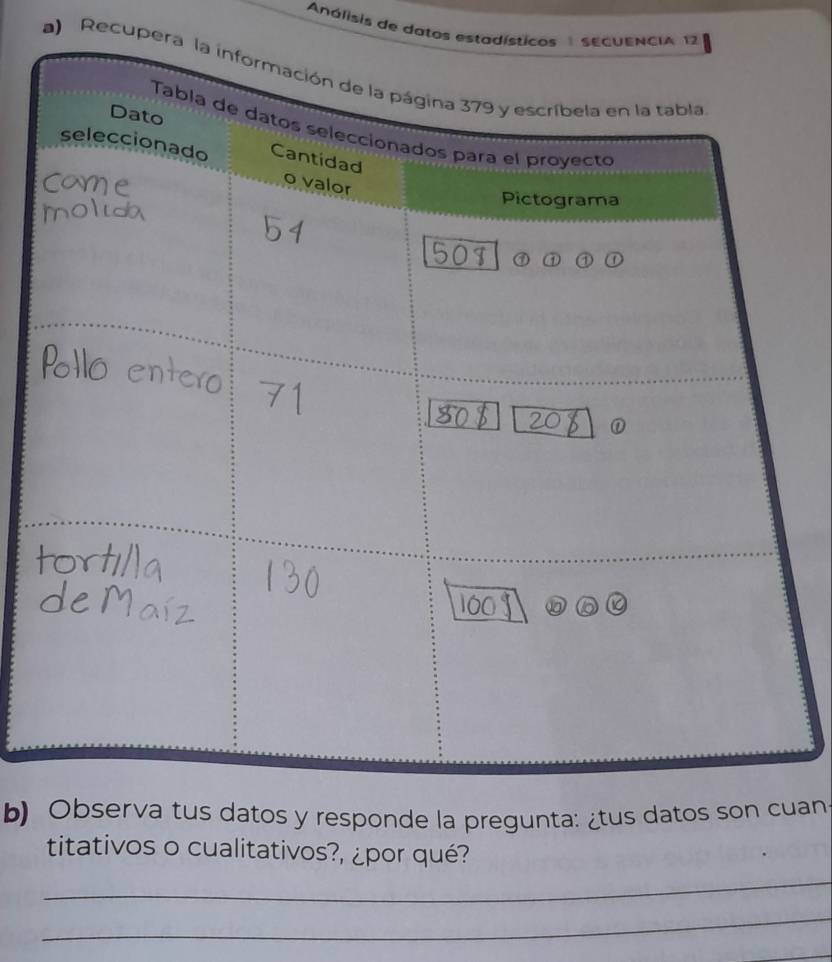 Análisis de datos estadísticos | SECUENCIA 12
a) Recupera la información de la página 379 y escríbela en la tabla.
Tabla de datos seleccionados para el proyecto
Dato
seleccionado
Cantidad
o valor
Pictograma
came
molida
54
50$ 1 1 1 1
Pollo entero
71
50$ 20$ 1
tortilla
de Maíz
130
100$ 10 10 10
b) Observa tus datos y responde la pregunta: ¿tus datos son cuan-
titativos o cualitativos?, ¿por qué?